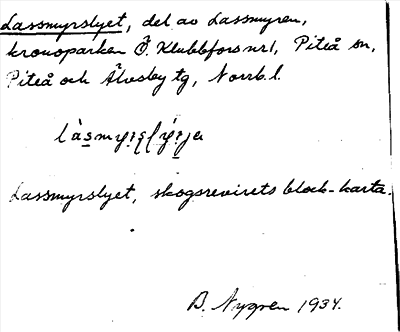 Lassmyrslyet, del av Lassmyren,
kronoparken Ö. Klubbfors nr 1, Piteå sn,
Piteå och Älvsby tg, Norrb. l.
Lassmyrslyet, skogsrevirets block-karta.
B. Nygren 1934.